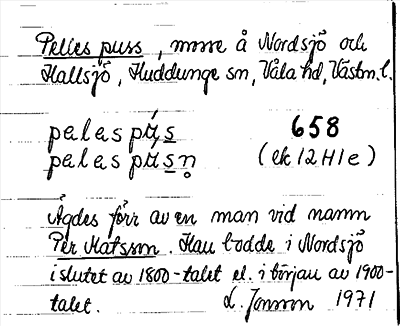 Pelles puss, mosse å Nordsjö och
Hallsjö, Huddunge sn, Våla hd, Västm.l.
pelas pu̇́s 658
pelas pu̇́sn̥ (ek 12 H 1 e)
Ägdes förr av en man vid namn
Per Matsson. Han bodde i Nordsjö
i slutet av 1800-talet el. i början av 1900-
talet. L. Jonsson 1971